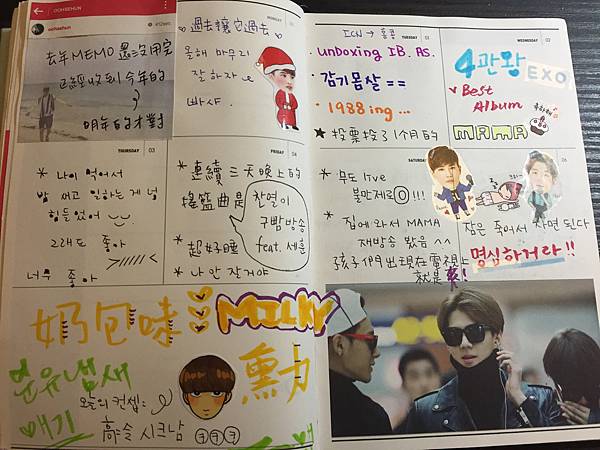 OOHSEHUN
oohsehun
去年MEMO還沒用完
已經收到今年的
明年的才對
過去讓它過去
올해 마무리
잘 하자
빠샤.
ICN → 홍콩
TUESDAY 01
unboxing IB. AS.
· 감기몸살 ==
· 1988 ing ...
★ 投票投了1个月的
WEDNESDAY 02
4관왕 EXO
Best
Album
MAMA
THURSDAY 03
* 나이 먹어서
밤 새고 일하는게 넘
힘들었어
그래도 좋아
너무 좋아
FRIDAY 04
* 連續三天晚上的
搖籃曲是
찬열이
구밤방송
feat. 세훈
* 超好睡
* 나 안 잤거야
SATURDAY
* 무도 live
불만제로 0 !!!
* 집에와서 MAMA
재방송 봤음 ^^
孩子們出現在電視上
就是爽!
06
잠은 죽어서 자면 된다
명심하거라!!
奶包味
MILKY
勳力
분유냄새
애기
오늘의 컨셉:
高순 시크남
ㅋㅋㅋ